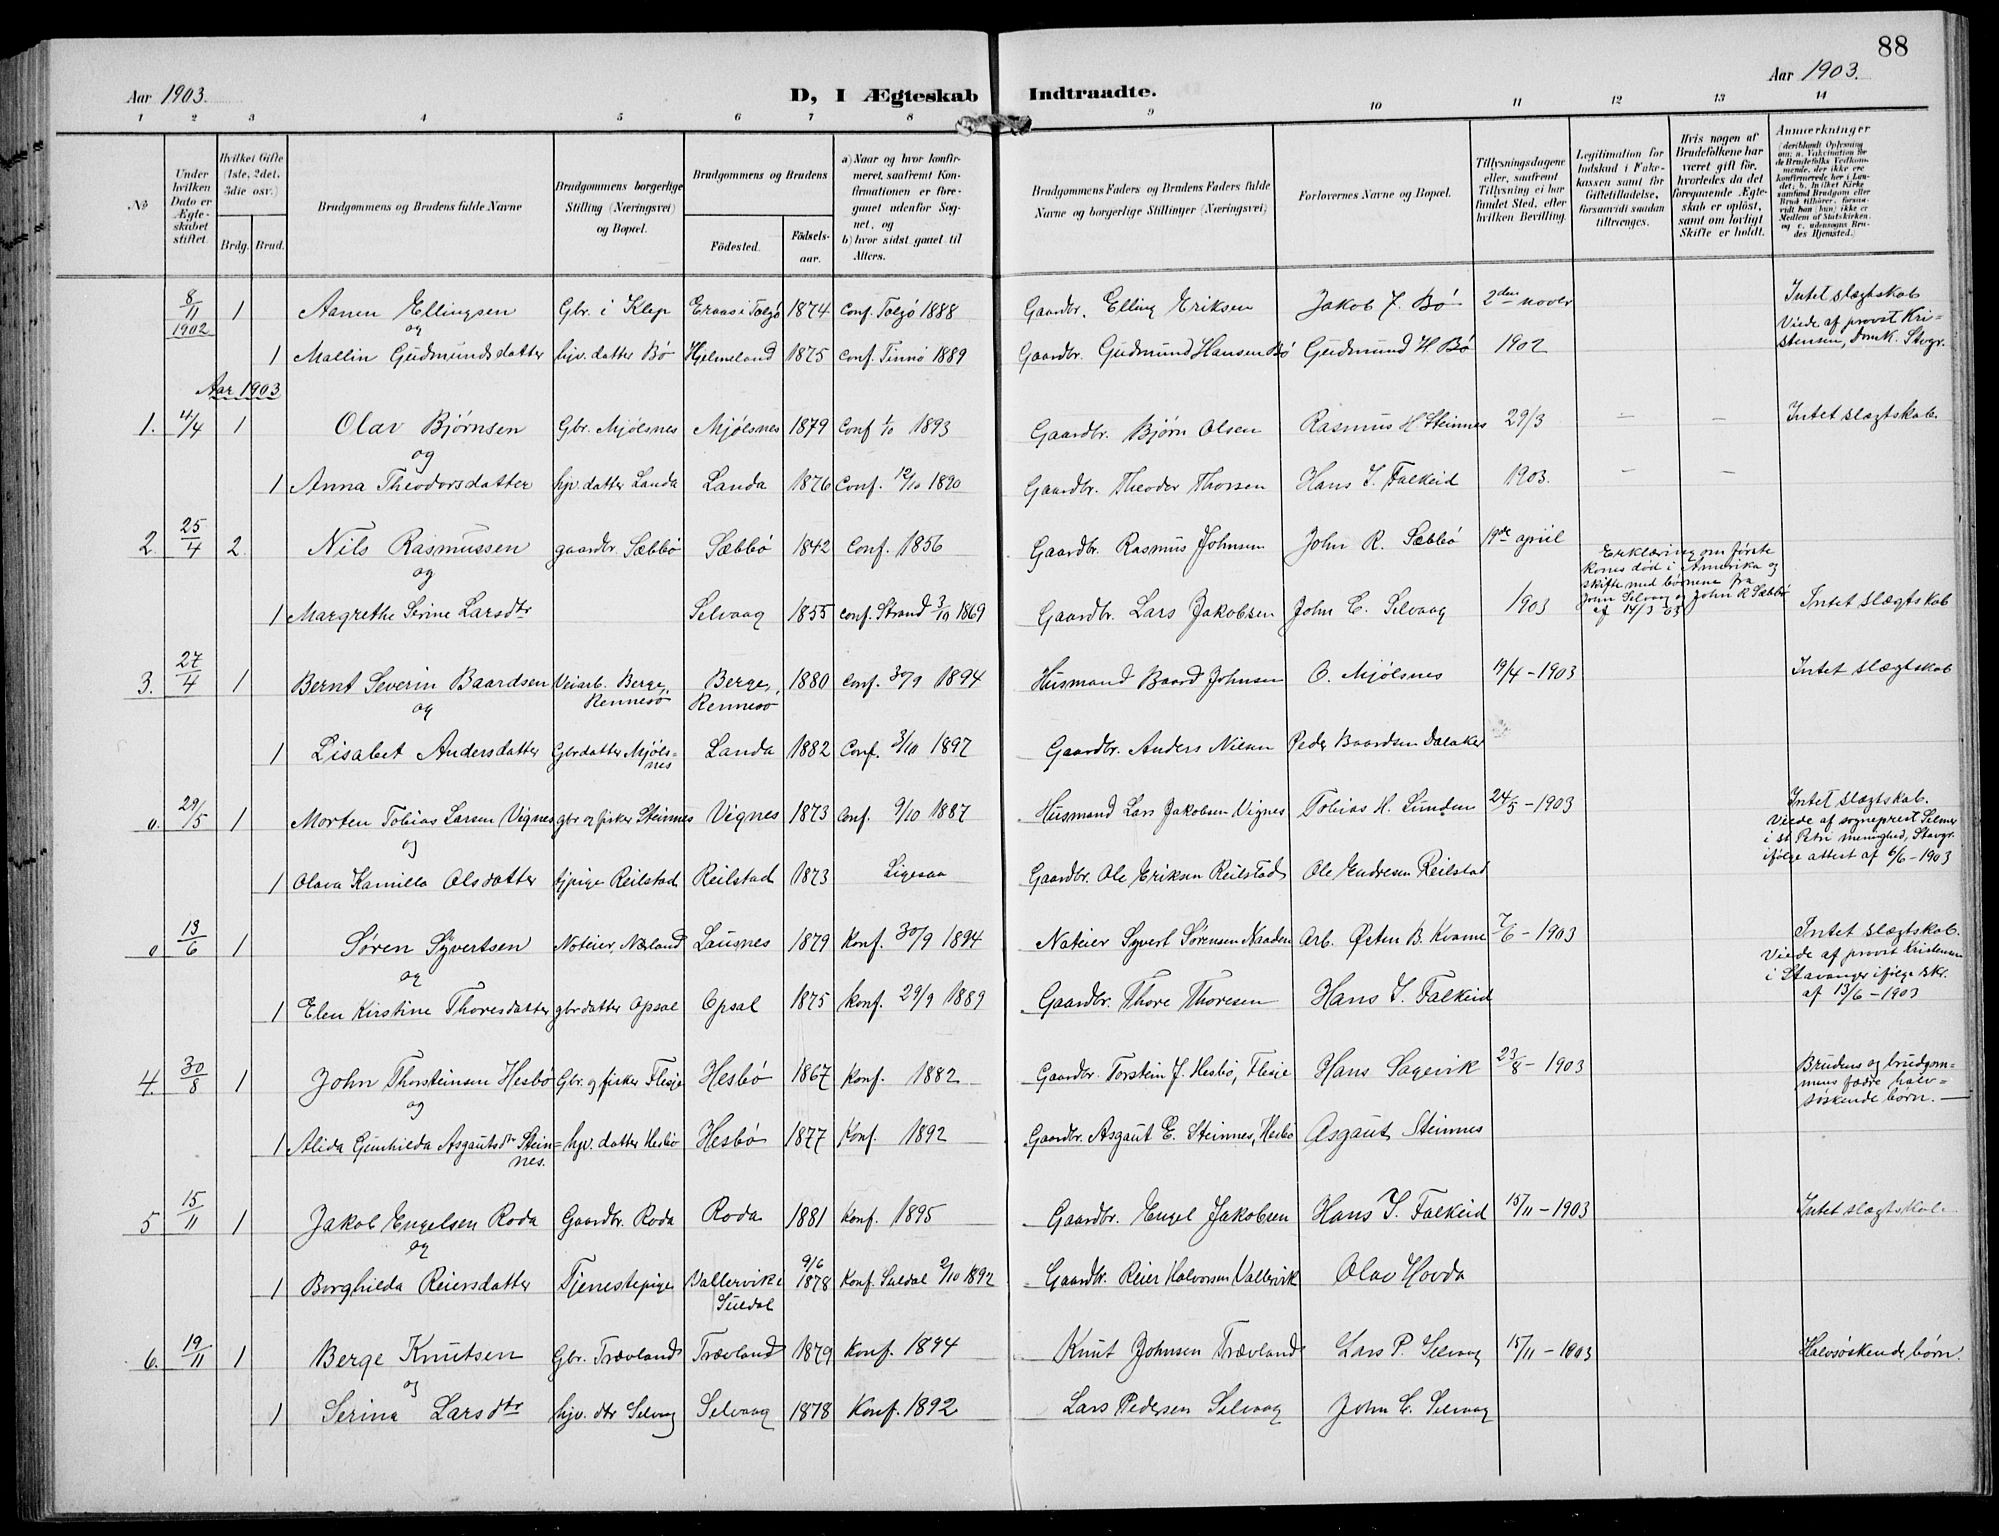 88
Aar 1903.
D, I Ægteskab Indtraadte.
Aar 1903.
1 2 3 4 5 6 7 8 9 10 11 12 13 14
No
Under hvilken Dato er Ægteskabet stiftet.
Hvilket Gifte (1ste, 2det, 3die osv.)
Brdg. Brud.
Brudgommens og Brudens fulde Navne
Brudgommens borgerlige Stilling (Næringsvei) og Bopæl.
Brudgommens og Brudens
Födested. Födsels-aar.
a) Naar og hvor konfirmeret, saafremt Konfirmationen er foregaaet udenfor Sognet, og
b) hvor sidst gaaet til Alters.
Brudgommens Faders og Brudens Faders fulde Navne og borgerlige Stillinger (Næringsvei)
Forlovernes Navne og Bopæl.
Tillysningsdagene eller, saafremt Tillysning ei har fundet Sted, efter hvilken Bevilling.
Legitimation for Indskud i Enkekassen samt for Giftetilladelse, forsaavidt saadan tiltrænges.
Hvis nogen af Brudefolkene har været gift før, hvorledes da det foregaaende Ægteskab er oplöst, samt om lovligt Skifte er holdt.
Anmærkninger (deriblandt Oplysning om: a. Vakcination for de Brudefolks Vedkommende, der ikke ere konfirmerede her i Landet; b. hvilket Kirkesamfund Brudgom eller Brud tilhörer, forsaavidt han (hun) ikke er Medlem af Statskirken, og c. udensogns Brudes Hjemsted.)
8/11 1902 1 Aanen Ellingsen Gbr. i Klep Eraas i Talgø 1874 Conf. Talgø 1888 Gaardbr. Elling Eriksen Jakob J. Bø 2den novbr Intet slægtskab
og Viede af provst Kri-
1 Mallin Gudmundsdatter hjv. datter Bø Hjelmeland 1875 Conf. Finnø 1889 Gaardbr. Gudmund Hansen Bø Gudmund H Bø 1902 stensen, Domk. Stvgr.
Aar 1903
1. 4/4 1 Olav Bjørnsen Gbr. Mjølsnes Mjølsnes 1879 Conf 1/10 1893 Gaardbr. Bjørn Olsen Rasmus H Steinnes 29/3 – – Intet slægtskab.
og
1 Anna Theodorsdatter hjv. datter Landa Landa 1876 Conf. 12/10 1890 Gaardbr. Theodor Thorsen Hans I. Falkeid 1903. – –
2. 25/4 2 Nils Rasmussen gaardbr. Sæbbø Sæbbø 1842 Conf. 1856 Gaardbr. Rasmus Johnsen John R. Sæbbø 19de april Erklæring om første
og kones død i Amerika og
skifte med børnene fra
1 Margrethe Serine Larsdtr Selvaag 1855 Conf. Strand 3/10 1869 Gaardbr. Lars Jakobsen John C. Selvaag 1903 John Selvaag og John R Sæbbø Intet slægtskab
af 14/3 03
3. 27/4 1 Bernt Severin Baardsen Veiarb. Berge, Rennesø Berge, Rennesø 1880 Conf. 30/9 1894 Husmand Baard Johnsen O. Mjølsnes 19/4 – 1903 Intet slægtskab
og
1 Lisabet Andersdatter Gbrdatter Mjøls-nes Landa 1882 Conf. 3/10 1897 Gaardbr. Anders Nilsen Peder Baardsen Dalaker
0. 29/5 1 Morten Tobias Larsen Vignes gbr og fisker Steinnes Vignes 1873 Conf. 9/10 1887 Husmand Lars Jakobsen Vignes Tobias H. Lunden 24/5 – 1903 Intet slægtskab.
og Viede af sogneprest Selmer
i St Petri menighed, Stavgr.
ifølge attest af 6/6 – 1903
1 Olava Kamilla Olsdatter tjpige Reilstad Reilstad 1873 Ligesaa Gaardbr. Ole Eriksen Reilstad Ole Endresen Reilstad
0 13/6 1 Søren Syvertsen Noteier, Nærland Lausnes 1879 Konf. 30/9 1894 Noteier Syvert Sørensen Naaden Arb. Østen B. Kvame 7/6 – 1903 Intet slægtskab.
og Viede af provst Kristensen
i Stavanger ifølge skr.
1 Elen Kirstine Thoresdatter gbrdatter Opsal Opsal 1875 Konf. 29/9 1889 Gaardbr. Thore Thoresen Hans I. Falkeid af 13/6 – 1903
4. 30/8 1 John Thorsteinsen Hesbø Gbr. og fisker Flesje Hesbø 1867 Konf. 1882 Gaardbr. Torstein J. Hesbø, Flesje Hans Sagevik 23/8 – 1903 Brudens og brudgom-
og mens fædre halv-
søskende børn. –
1 Alida Gunhilda Asgautsdtr Stein-nes. hjv. datter Hesbø Hesbø 1877 Konf. 1892 Gaardbr. Asgaut E. Steinnes, Hesbø Asgaut Steinnes
5 15/11 1 Jakob Engelsen Roda Gaardbr. Roda Roda 1881 Konf. 1895 Gaardbr. Engel Jakobsen Hans I. Falkeid 15/11 – 1903 Intet slægtskab.
og
1 Borghilda Reiersdatter Tjenestepige Vallervik i Suldal 9/6 1878 Konf. Suldal 2/10 1892 Gaardbr. Reier Halvorsen Vallervik Olav Hovda
6. 19/11 1 Berge Knutsen Gbr. Trævland Trævland 1879 Konf. 1894 Knut Johnsen Trævland Lars P. Selvaag 15/11 – 1903 Halvsøskendebørn.
og
1 Serina Larsdtr hjv. dtr Selvaag Selvaag 1878 Konf. 1892 Lars Pedersen Selvaag John C. Selvaag